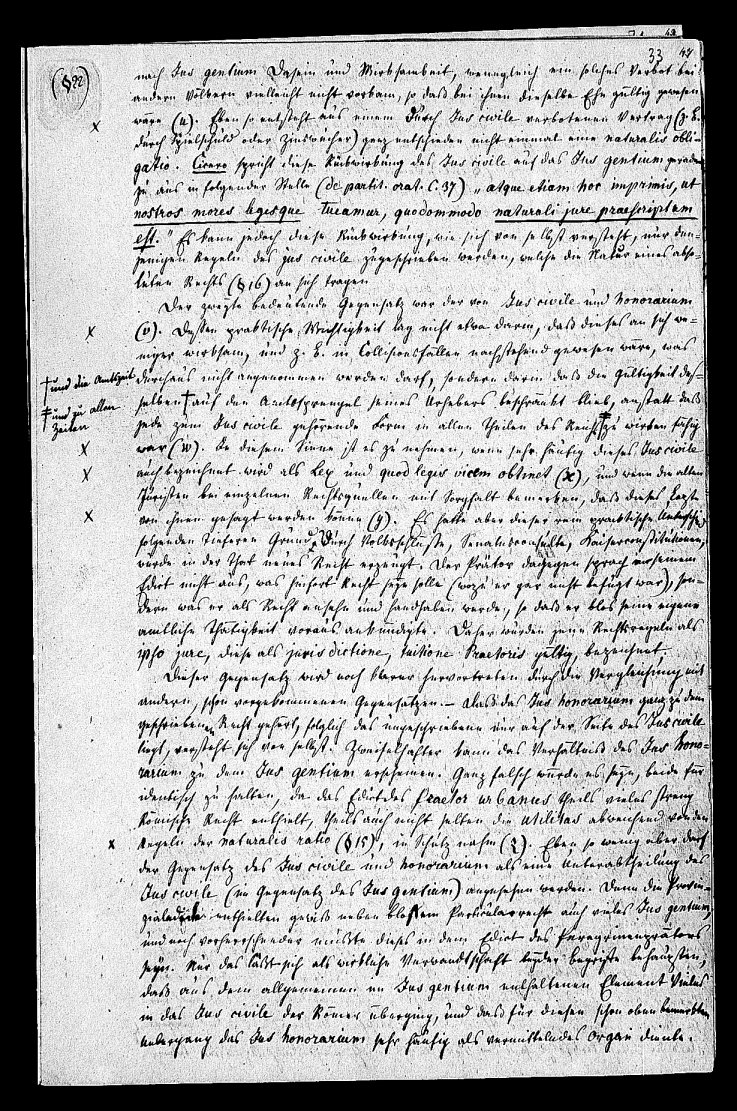 33 47
(§22)
nach Jus gentium Daseyn und Wirksamkeit, wenngleich ein solches Verbot bei
andern Völkern vielleicht nicht vorkam, so daß bei ihnen dieselbe Ehe gültig gewesen
wäre (u). Eben so entsteht aus einem durch Jus civile verbotenen Vertrag (z. B.
durch Spielschuld oder Zinswucher) ganz entschieden nicht einmal eine naturalis obli-
gatio. Cicero spricht diese Rückwirkung des Jus civile auf das Jus gentium geradezu
zu aus in folgender Stelle (de partit. orat. C. 37) „atque etiam hoc imprimis, ut
nostros mores legesque tueamur, quodammodo naturali jure praescriptum
est.“ Es kann jedoch diese Rückwirkung, wie sich von selbst versteht, nur den-
jenigen Regeln des jus civile zugeschrieben werden, welche die Natur eines abso-
luten Rechts (§16) an sich tragen.
Der zweyte bedeutende Gegensatz war der von Jus civile und honorarium
(v). Dessen praktische Wichtigkeit lag nicht etwa darin, daß dieses an sich we-
niger wirksam, und z. B. in Collisionsfällen nachstehend gewesen wäre, was
† und die Amtszeit
durchaus nicht angenommen werden darf, sondern darin daß die Gültigkeit des-
selben † auf den Amtssprengel seines Urhebers beschränkt blieb, anstatt daß
‡ und zu allen
Zeiten
jede zum Jus civile gehörende Form in allen Theilen des Reichs ‡ zu wirken fähig
war (w). In diesem Sinne ist es zu nehmen, wenn sehr häufig dieses Jus civile
auch bezeichnet wird als Lex und quod legis vicem obtinet (x), und wenn die alten
Juristen bei einzelnen Rechtsquellen mit Sorgfalt bemerken, daß dieses Letzte
von ihnen gesagt werden könne (y). Es hatte aber dieser rein praktische Unterschied
folgenden tieferen Grund. Durch Volksschlüsse, Senatusconsulte, Kaiserconstitutionen,
wurde in der That neues Recht erzeugt. Der Prätor dagegen sprach in seinem
Edict nicht aus, was hinfort Recht seyn solle (wozu er gar nicht befugt war), son-
dern was er als Recht ansehn und handhaben werde, so daß er blos seine eigene
amtliche Thätigkeit voraus ankündigte. Daher wurden jene Rechtsregeln als
ipso jure, diese als juris dictione, tuitione Praetoris gültig, bezeichnet.
Dieser Gegensatz wird noch klarer hervortreten durch die Vergleichung mit
andern, schon vorgekommenen Gegensätzen. – Daß das Jus honorarium ganz zu dem
geschriebenen Recht gehört, folglich das ungeschriebene nur auf der Seite des Jus civile
liegt, versteht sich von selbst. Zweifelhafter kann das Verhältniß des Jus hono-
rarium zu dem Jus gentium erscheinen. Ganz falsch würde es seyn, beide für
identisch zu halten, da das Edict des Praetor urbanus theils vieles streng
Römische Recht enthielt, theils auch nicht selten die utilitas abweichend von den
Regeln der naturalis ratio (§15), in Schutz nahm (z). Eben so wenig aber darf
der Gegensatz des Jus civile und honorarium als eine Unterabtheilung des
Jus civile (im Gegensatz des Jus gentium) angesehen werden. Denn die Provin-
zialedicte enthielten gewiß neben bloßem Particularrecht auch vieles Jus gentium,
und noch vorherrschender mußte dieses in dem Edict des Peregrinenprätors
seyn. Nur das läßt sich als wirkliche Verwandtschaft beyder Begriffe behaupten,
daß aus dem allgemeinen im Jus gentium enthaltenen Element Vieles
in das Jus civile der Römer überging, und daß für diesen schon oben bemerkten
Uebergang das Jus honorarium sehr häufig als vermittelndes Organ diente.